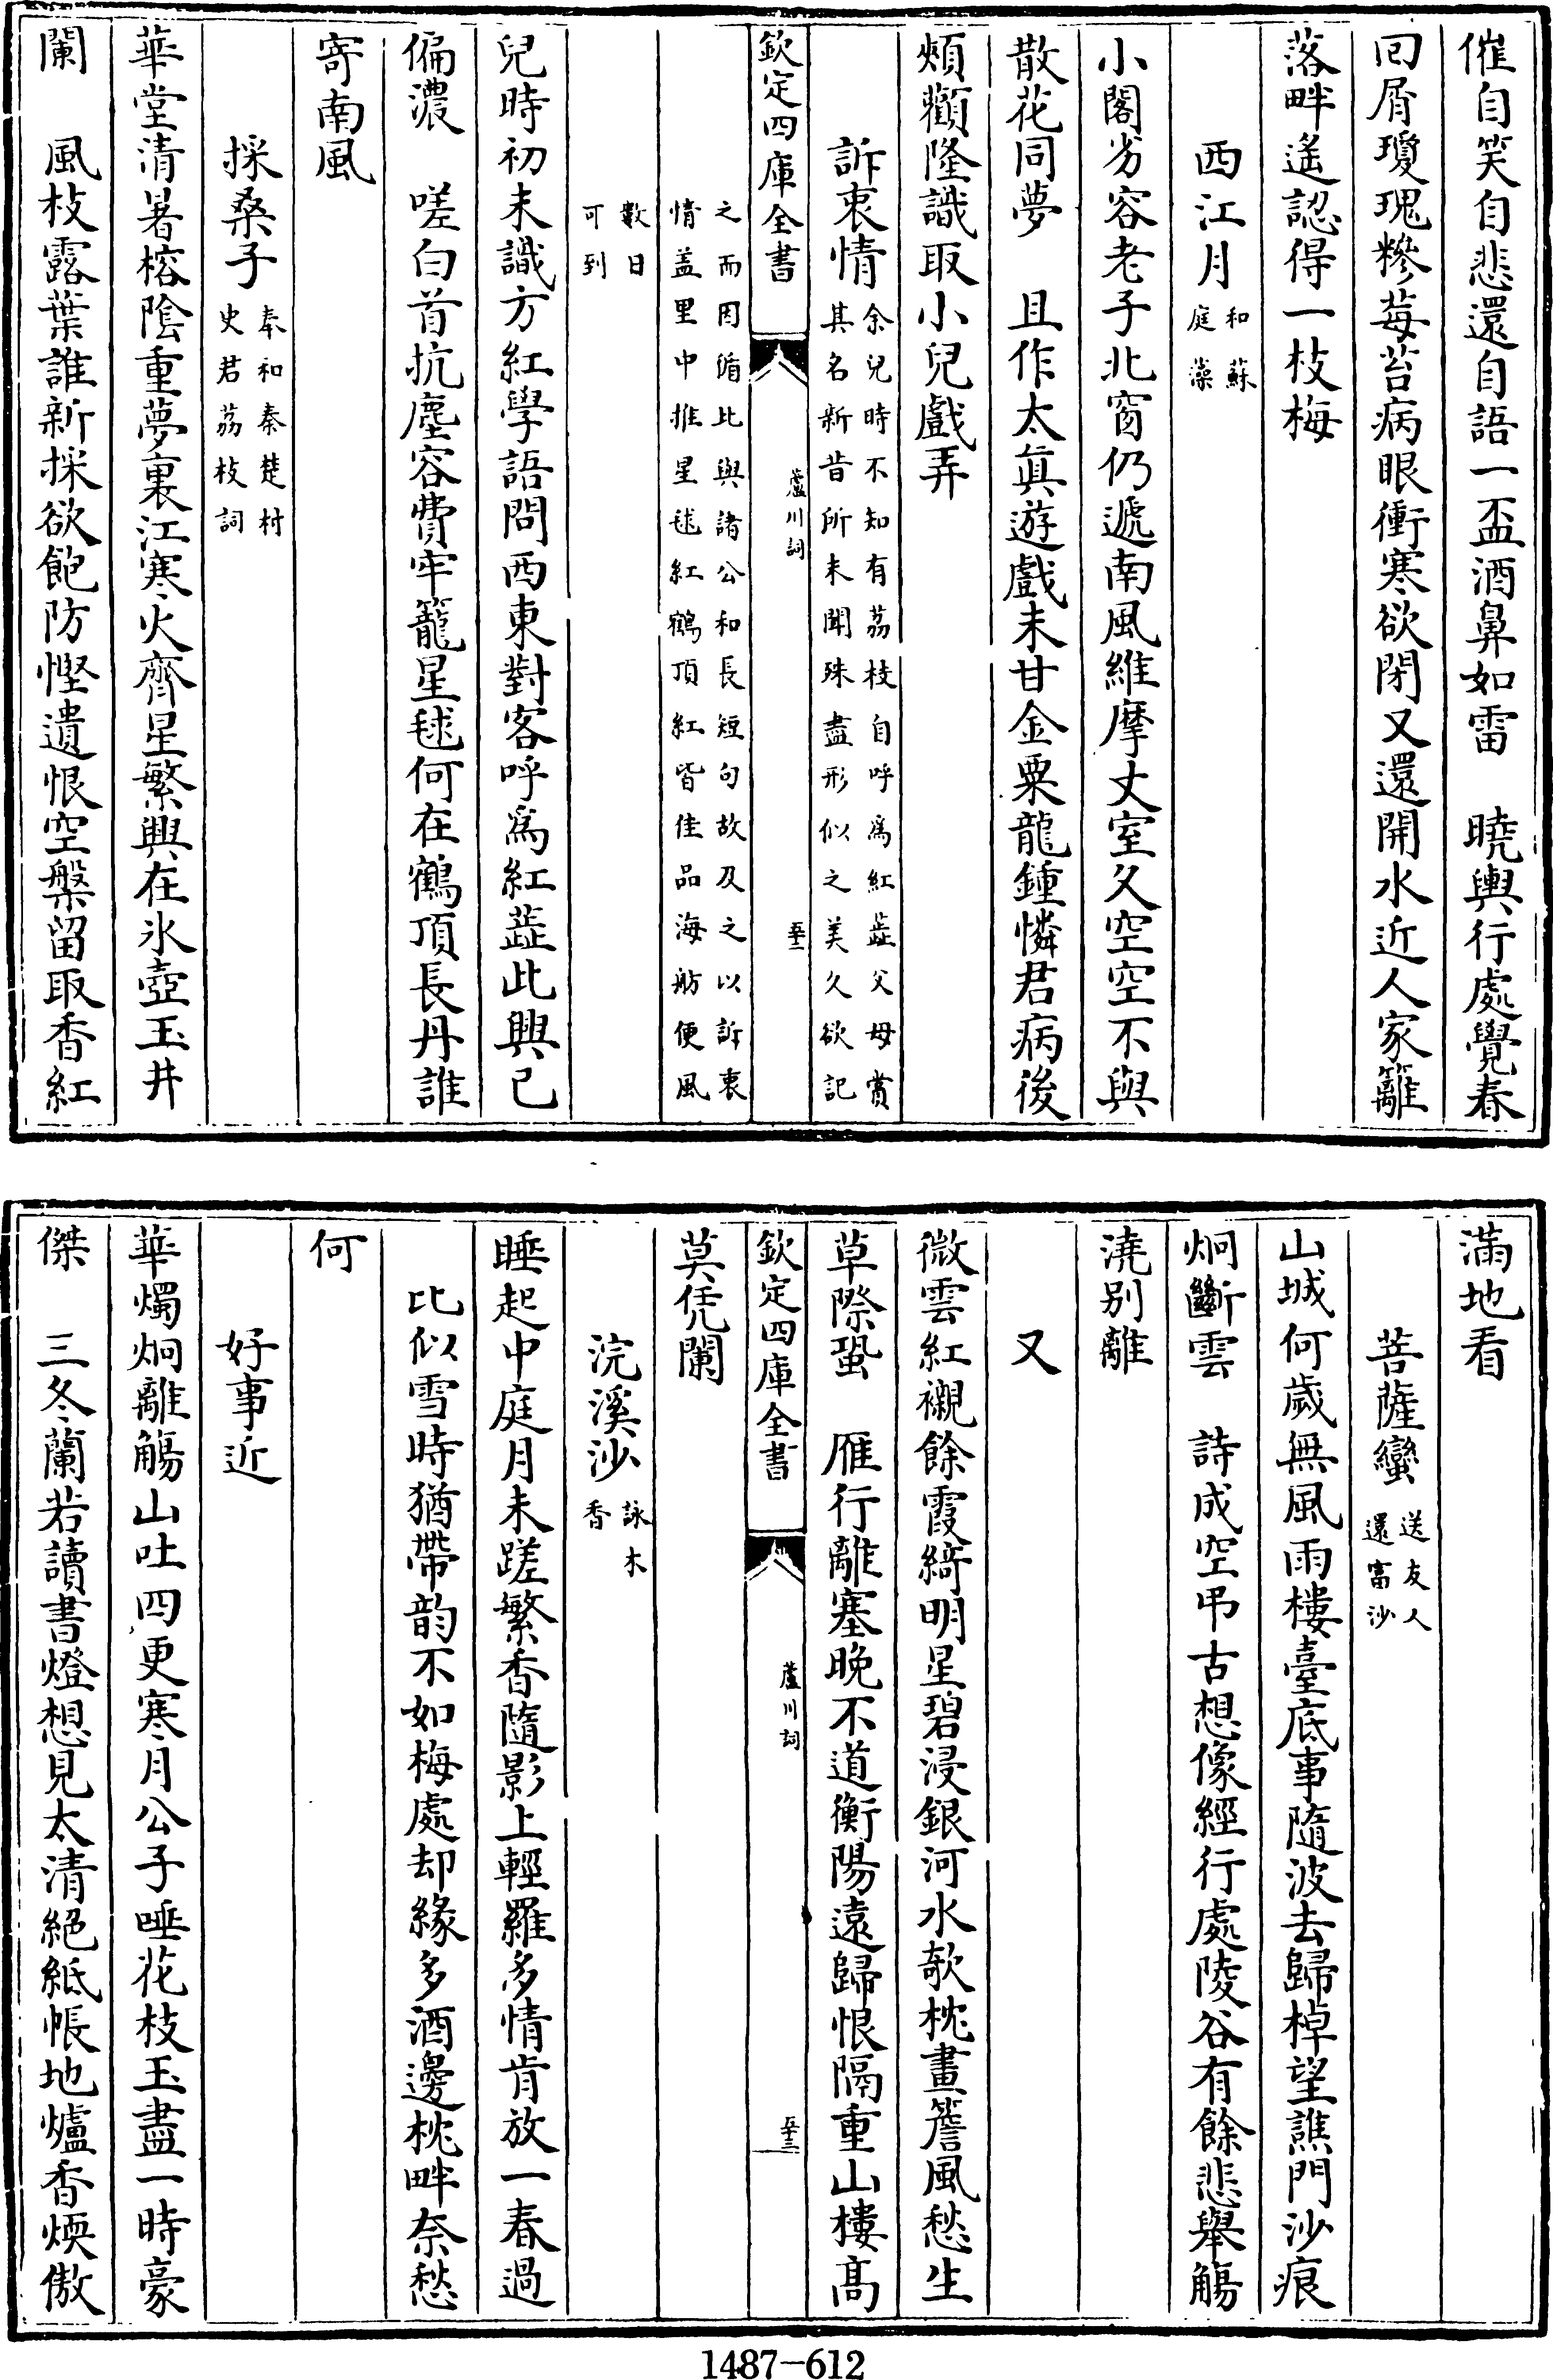 催自笑自悲還自語一盃酒鼻如雷　曉輿行處覺春
回屑瓊瑰糝莓苔病眼衝寒欲閉又還開水近人家籬
落畔遙認得一枝梅
西江月和蘇
庭藻
小閣劣容老子北窗仍遞南風維摩丈室久空空不與
散花同夢　且作太眞遊戲未甘金粟龍鍾憐君病後
頰顴隆識取小兒戲弄
訴衷情余兒時不知有荔枝自呼爲紅蕋父母賞
其名新昔所未聞殊盡形似之美久欲記
欽定四庫全書
蘆川詞
五十二
之而因循比與諸公和長短句故及之以訴衷
情盖里中推星毬紅鶴頂紅皆佳品海舫便風
數日
可到
兒時初未識方紅學語問西東對客呼爲紅蕋此興已
偏濃　嗟白首抗塵容費牢籠星毬何在鶴頂長丹誰
寄南風
採桑子奉和秦楚村
史君荔枝詞
華堂清暑榕陰重夢裏江寒火齊星繁興在氷壺玉井
闌　風枝露葉誰新採欲飽防慳遺恨空槃留取香紅
滿地看
菩薩蠻送友人
還富沙
山城何歲無風雨樓臺底事隨波去歸棹望譙門沙痕
烱斷雲　詩成空弔古想像經行處陵谷有餘悲舉觴
澆别離
又
微雲紅襯餘霞綺明星碧浸銀河水欹枕畫簷風愁生
草際蛩　雁行離塞晚不道衡陽遠歸恨隔重山樓髙
欽定四庫全書
蘆川詞
五十三
莫凭闌
浣溪沙詠木
香
睡起中庭月未蹉繁香隨影上輕羅多情肯放一春過
比似雪時猶帶韵不如梅處却緣多酒邊枕畔奈愁
何
好事近
華燭烱離觴山吐四更寒月公子唾花枝玉盡一時豪
傑　三冬蘭若讀書燈想見太清絶紙帳地爐香煗傲
1487-612